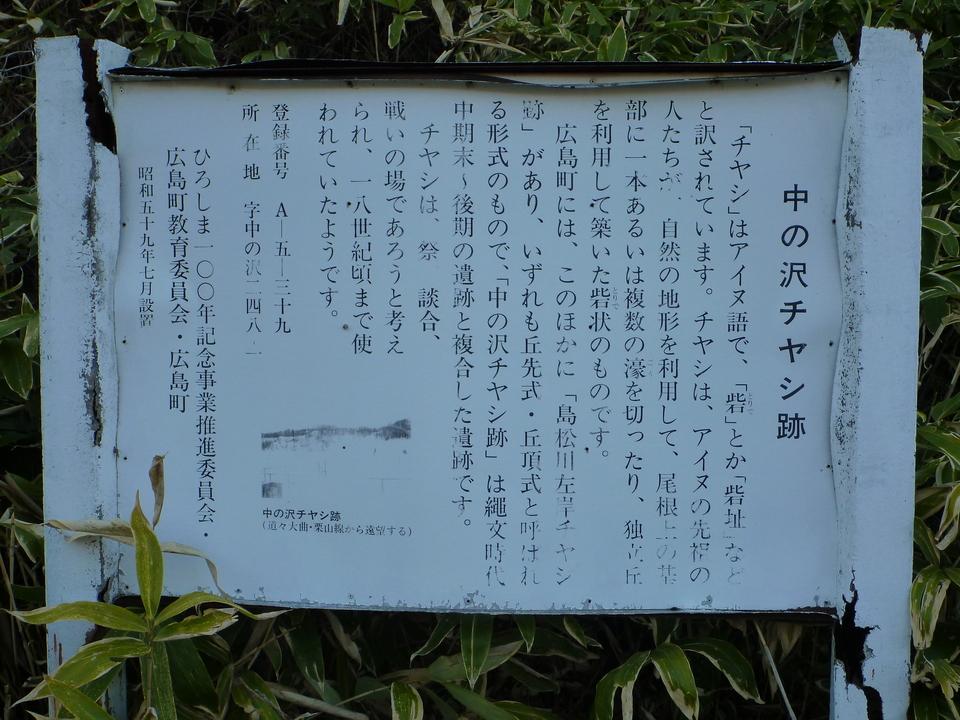 中の沢チャシ跡
「チヤシ」はアイヌ語で、「砦」とか「砦址」など
と訳されています。チヤシは、アイヌの先祖の
人たちが、自然の地形を利用して、尾根上の基
部に一本あるいは複数の濠を切ったり、独立丘
を利用して築いた砦状のものです。
広島町には、このほかに「島松川左岸チヤシ
跡」があり、いずれも丘先式・丘頂式と呼ばれ
る形式のもので、「中の沢チヤシ跡」は縄文時代
中期末〜後期の遺跡と複合した遺跡です。
チヤシは、祭 談合、
戦いの場であろうと考え
られ、一八世紀頃まで使
われていたようです。
登録番号 A―五―三十九
所在地 字中の沢二四八
ひろしま一〇〇年記念事業推進委員会・
広島町教育委員会・広島町
昭和五十九年七月設置
中の沢チヤシ跡
(道々大曲・栗山線から遠望する)